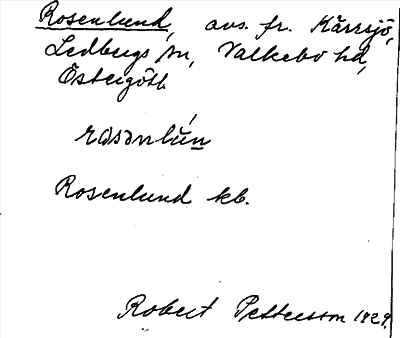 Rosenlund, avs. fr. Kärrsjö,
Ledbergs sn, Valkebo hd,
Östergötl.
rɷsənlún
Rosenlund kb.
Robert Pettersson 1929.